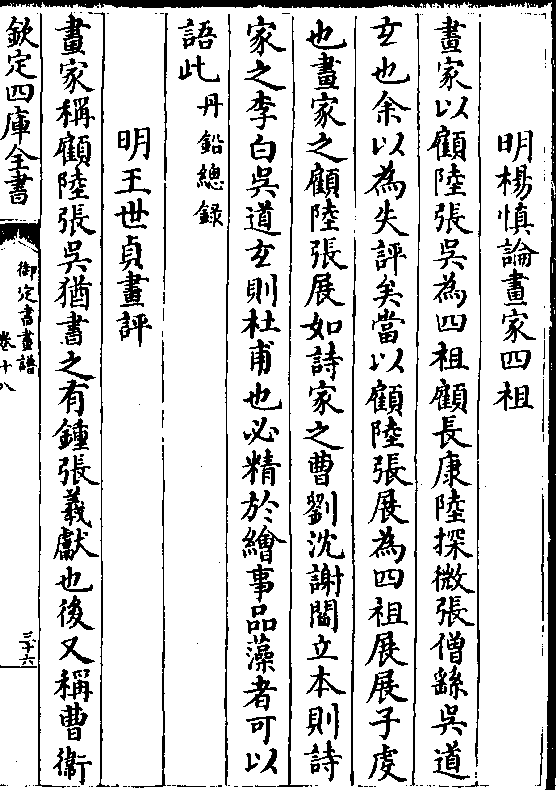 明楊慎論畫家四祖
畫家以顧陸張吳為四祖顧長康陸探微張僧繇吳道
𤣥也余以為失評矣當以顧陸張展為四祖展展子䖍
也畫家之顧陸張展如詩家之曹劉沈謝閻立本則詩
家之李白吳道𤣥則杜甫也必精於繪事品藻者可以
語此丹鉛總錄
明王世貞畫評
畫家稱顧陸張吳猶書之有鍾張羲獻也後又稱曹衛
欽定四庫全書
御定書畫譜
卷十八
三十六